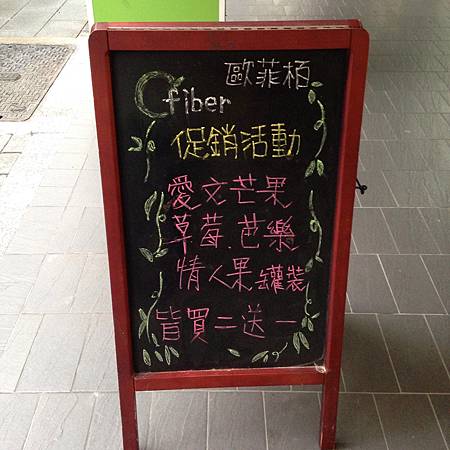 歐菲栢
Ofiber
促銷活動
愛文芒果
草莓.芭樂
情人果罐裝
皆買二送一